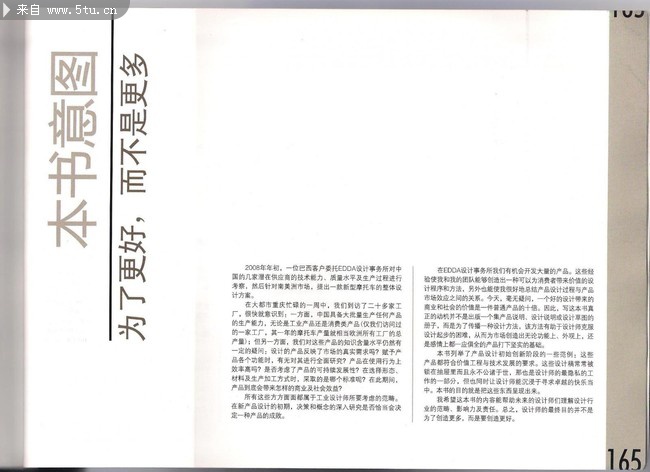 来自 www.5tu.cn
165
本书意图
为了更好，而不是更多
2008年年初，一位巴西客户委托EDDA设计事务所对中
国的几家潜在供应商的技术能力、质量水平及生产过程进行
考察，然后针对南美洲市场，提出一款新型摩托车的整体设
计方案。
在大都市重庆忙碌的一周中，我们到访了二十多家工
厂。很快就意识到：一方面，中国具备大批量生产任何产品
的生产能力，无论是工业产品还是消费类产品（仅我们访问过
的一家工厂，其一年的摩托车产量就相当欧洲所有工厂的总
产量）；但另一方面，我们对这些产品的知识含量水平仍然有
一定的疑问：设计的产品反映了市场的真实需求吗？赋予产
品各个功能时，有无对其进行全面研究？产品在使用行为上
效率高吗？是否考虑了产品的可持续发展性？在选择形态、
材料及生产加工方式时，采取的是哪个标准呢？在此期间，
产品到底会带来怎样的商业及社会效益？
所有这些方方面面都属于工业设计师所要考虑的范畴。
在新产品设计的初期，决策和概念的深入研究是否恰当会决
定一种产品的成败。
在EDDA设计事务所我们有机会开发大量的产品。这些经
验使我和我的团队能够创造出一种可以为消费者带来价值的设
计程序和方法，另外也能使我很好地总结产品设计过程与产品
市场效应之间的关系。今天，毫无疑问，一个好的设计带来的
商业和社会的价值是一件普通产品的十倍。因此，写这本书真
正的动机并不是出版一个集产品说明、设计说明或设计草图的
册子，而是为了传播一种设计方法。该方法有助于设计师克服
设计起步的困难，从而为市场创造出无论功能上、外观上，还
是感情上都一应俱全的产品打下坚实的基础。
本书列举了产品设计初始创新阶段的一些范例；这些产
品都符合价值工程与技术发展的要求。这些设计稿常常被
锁在抽屉里而且永不公诸于世，那也是设计师的最隐私的工
作的一部分，但也同时让设计师能沉浸于寻求卓越的快乐当
中。本书的目的就是把这些东西呈现出来。
我希望这本书的内容能帮助未来的设计师们理解设计行
业的范畴、影响力及责任。总之，设计师的最终目的并不是
为了创造更多，而是要创造更好。
165